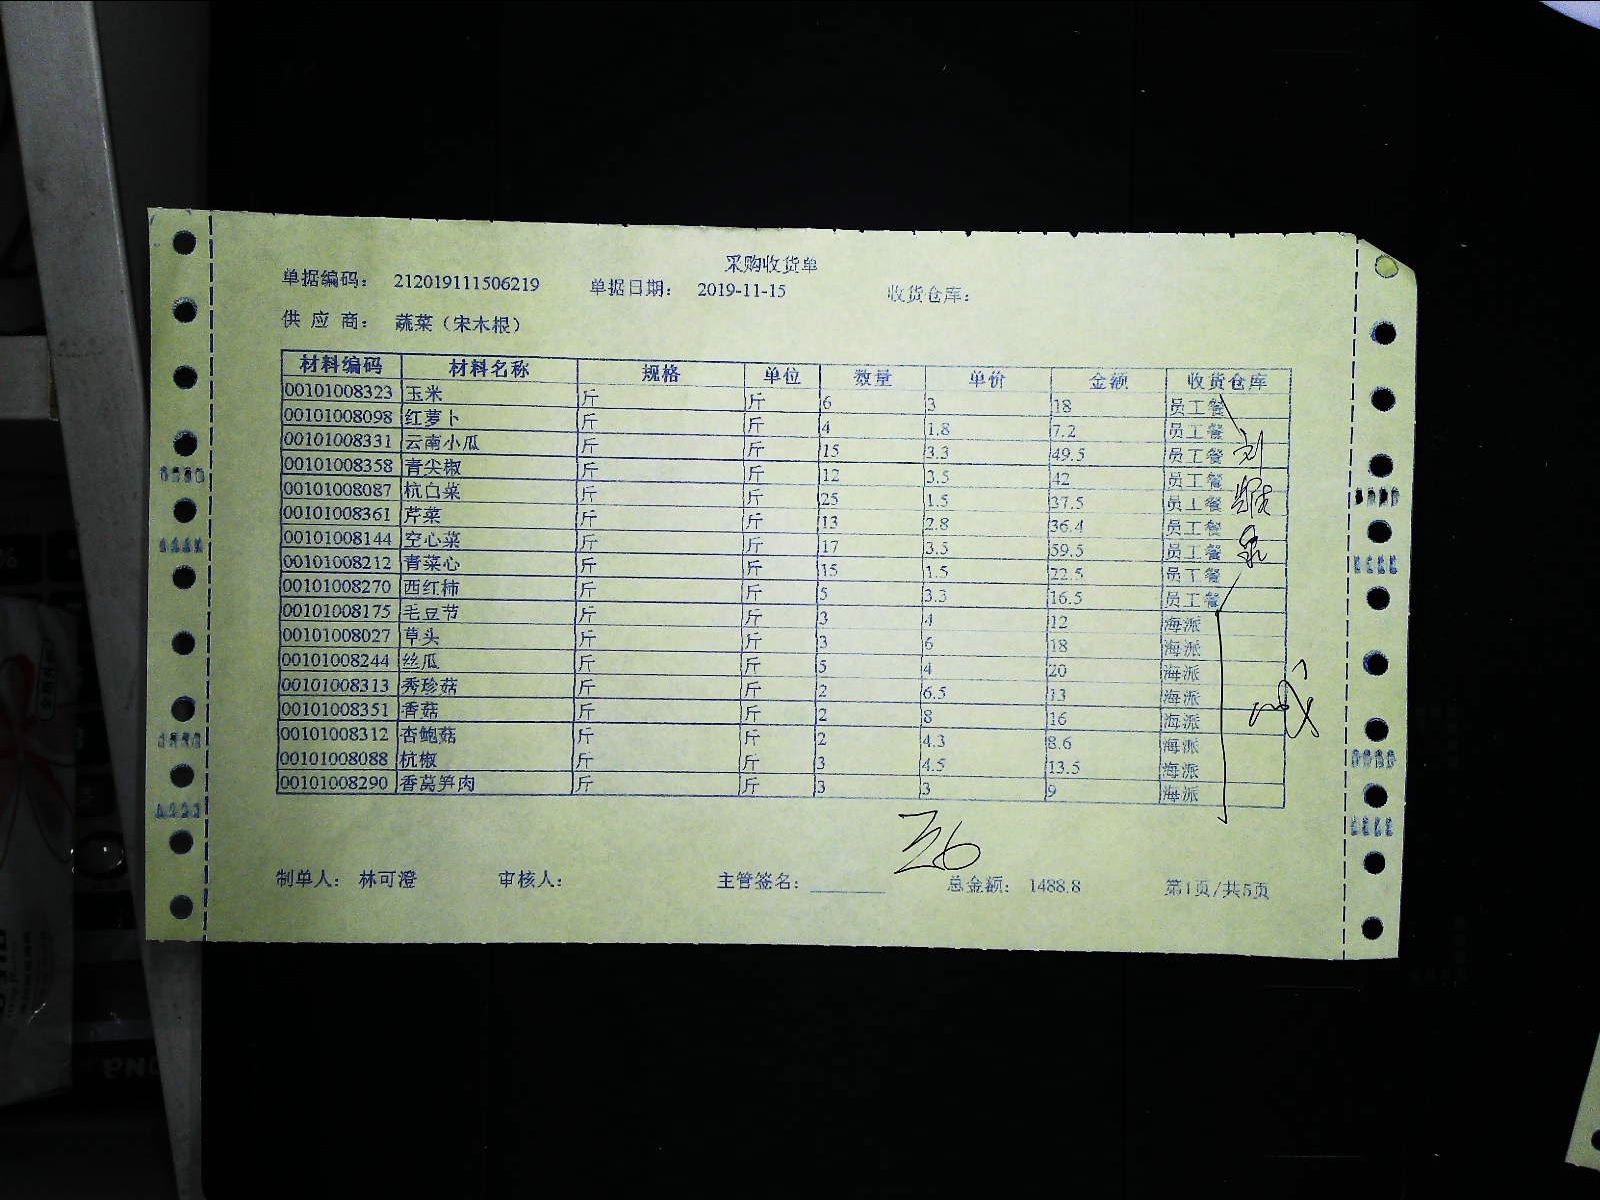 采购收货单
单据编码： 212019111506219 单据日期： 2019-11-15 收货仓库：
供 应 商： 蔬菜（宋木根）
材料编码 材料名称 规格 单位 数量 单价 金额 收货仓库
00101008323 玉米 斤 斤 6 3 18 员工餐
00101008098 红萝卜 斤 斤 4 1.8 7.2 员工餐
00101008331 云南小瓜 斤 斤 15 3.3 49.5 员工餐
00101008358 青尖椒 斤 斤 12 3.5 42 员工餐
00101008087 杭白菜 斤 斤 25 1.5 37.5 员工餐
00101008361 芹菜 斤 斤 13 2.8 36.4 员工餐
00101008144 空心菜 斤 斤 17 3.5 59.5 员工餐
00101008212 青菜心 斤 斤 15 1.5 22.5 员工餐
00101008270 西红柿 斤 斤 5 3.3 16.5 员工餐
00101008175 毛豆节 斤 斤 3 4 12 海派
00101008027 草头 斤 斤 3 6 18 海派
00101008244 丝瓜 斤 斤 5 4 20 海派
00101008313 秀珍菇 斤 斤 2 6.5 13 海派
00101008351 香菇 斤 斤 2 8 16 海派
00101008312 杏鲍菇 斤 斤 2 4.3 8.6 海派
00101008088 杭椒 斤 斤 3 4.5 13.5 海派
00101008290 香莴笋肉 斤 斤 3 3 9 海派
制单人： 林可澄 审核人： 主管签名：________ 总金额： 1488.8 第1页/共5页